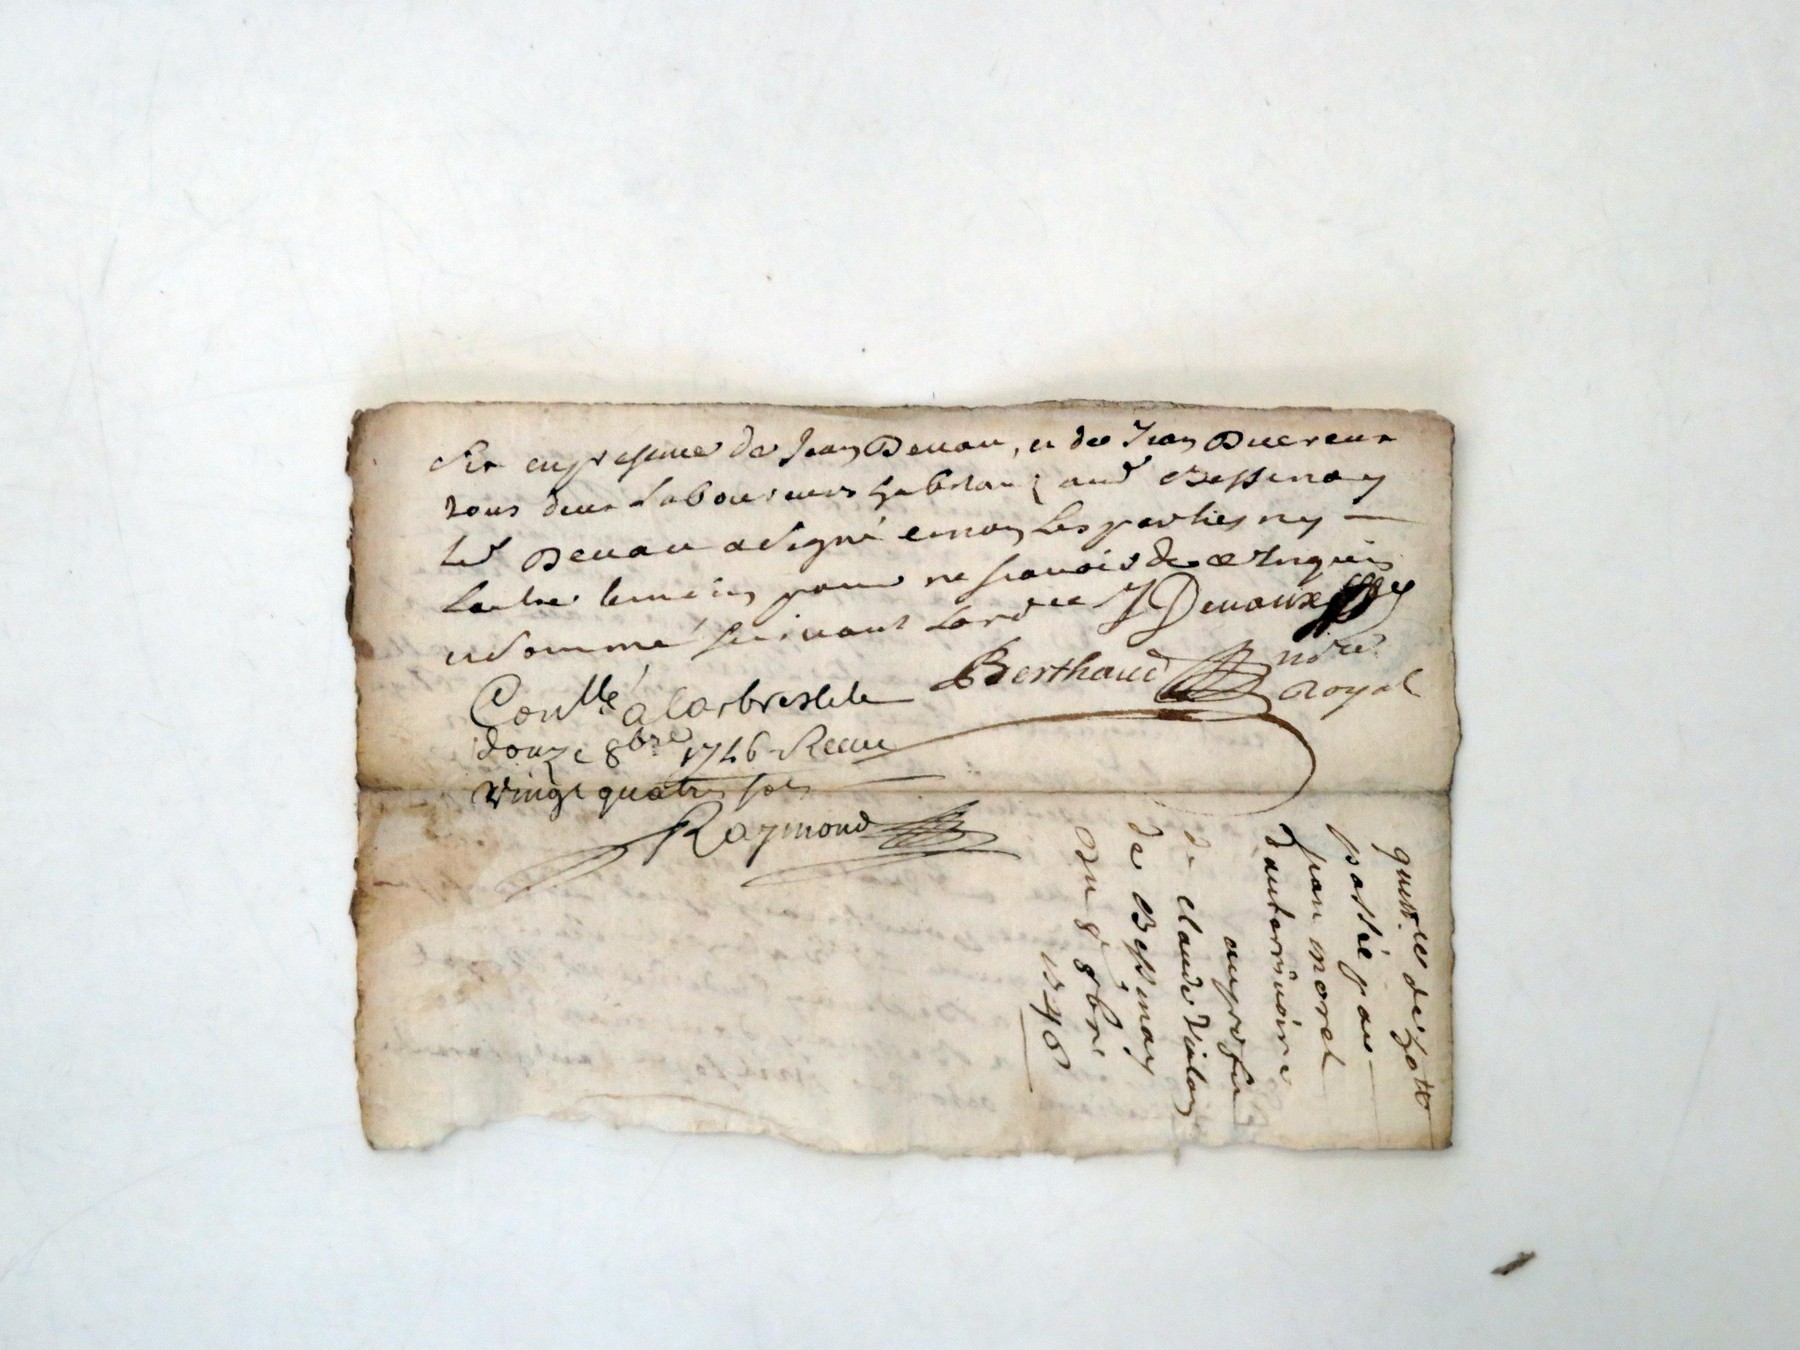 en presence de Jean Devau, et de Jean Ducreux
tous deux Laboureurs habitans aud Bessenay
led Devau a signé et non Les parties ny
Lautre temoin pour ne scavoir de ce Enquis
et sommé suivant Lord.ce J Devaux
Berthaud no.re
Royal
Con.llé a Larbresle le
douze 8bre 1746 Recu
vingt quatre sols
Raymond
quitt.ce de 30 tt
passée par
jean morel
dauterivoire
au profit
de claude Vialon
de Bessenay
Du 8.e 8bre
1746